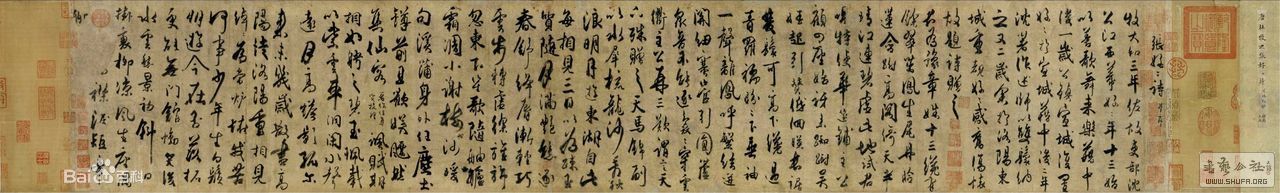 張好好詩 并序
牧大和三年佐故吏部沈
公江西幕好好年十三始
以善歌來樂籍中
後一歲公鎮宣城復置
好好於宣城籍中後二年
沈著作述師以雙鬟納
之又二歲余於洛陽東
城重覩好好感舊傷懷
故題詩贈之
君為豫章姝十三纔有
餘翠茁鳳生尾丹臉
蓮含跗高閣倚天半
晴江連碧虛此地試君
唱特使華筵鋪主公
顧四座始訝來踟躕吳
娃起引贊低佪映長裾
雙鬟可高下纔過
青羅襦盼盼下垂袖
一聲離鳳呼繁弦迸
關紐塞管引圓蘆
衆音不能逐裊裊穿雲
衢主公再三歎謂言天下
殊贈之天馬錦副
以水犀梳龍沙看秋
浪明月遊東湖自此
每相見三日以為疎玉
質隨月滿豔態逐
春舒絳脣漸輕巧
雲步轉虛徐旌旆
忽東下笙歌隨舳艫
霜凋小謝樹沙暖
句溪蒲身外任塵土
罇前且歡娛飄然
集仙客諷賦期
相如聘之碧玉珮載
以紫雲車洞閉水聲
遠月高蟾影孤爾
來未幾歲散盡高
陽徒洛陽重相見
綽綽為當壚怪我苦
何事少年生白鬚
朋遊今在否落拓
更能無門館慟哭後
水雲愁景初斜日
掛衰柳涼風生座隅
襟淚短章聊
Bai百科
書藝公社
www.SHUFA.ORG